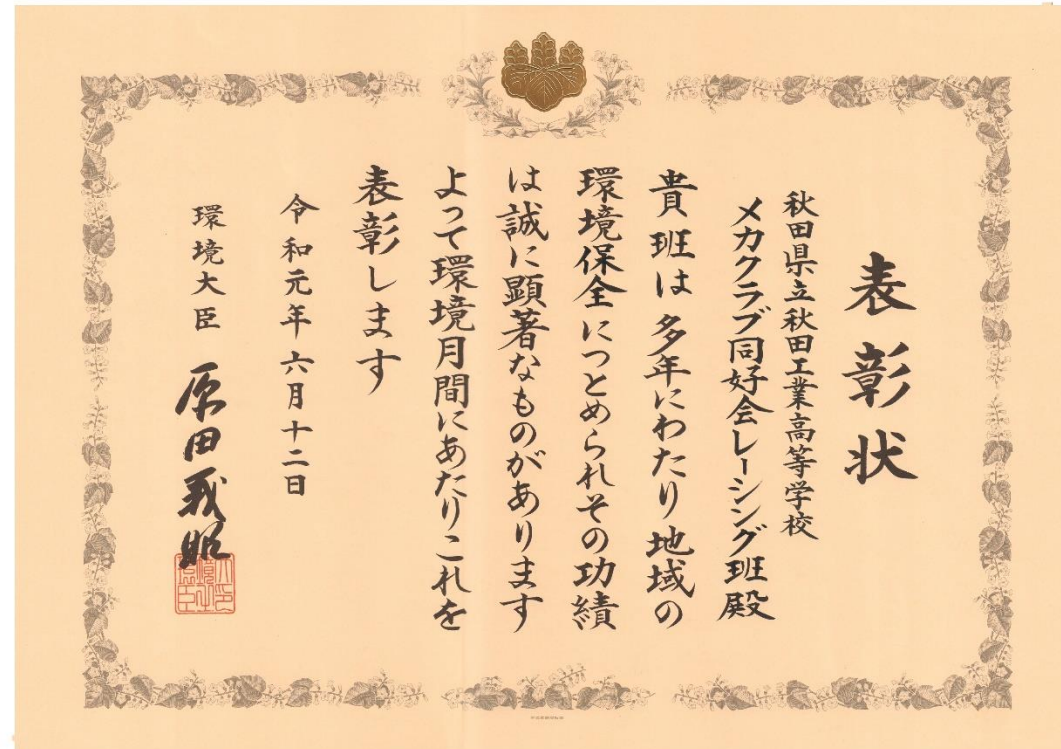 表彰状
秋田県立秋田工業高等学校
メカクラブ同好会レーシング班殿
貴班は多年にわたり地域の
環境保全につとめられその功績
は誠に顕著なものがあります
よって環境月間にあたりこれを
表彰します
令和元年六月十二日
環境大臣 原田義昭